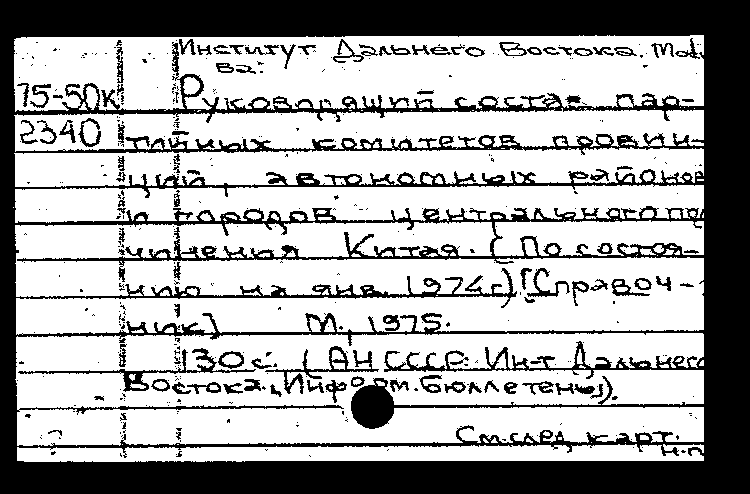 Институт Дальнего Востока. Мос
ва:
75-50к Руководящий состав пар-
2340 тийных комитетов провин-
ций, автономных районов
и городов центрального под
чинения Китая. (По состоя-
нию на янв. 1974г.) [Справоч-
ник] М., 1975.
130 с. (АН СССР. Ин-т Дальнего
Востока., Информ. бюллетены).
См. след карт.
н.п